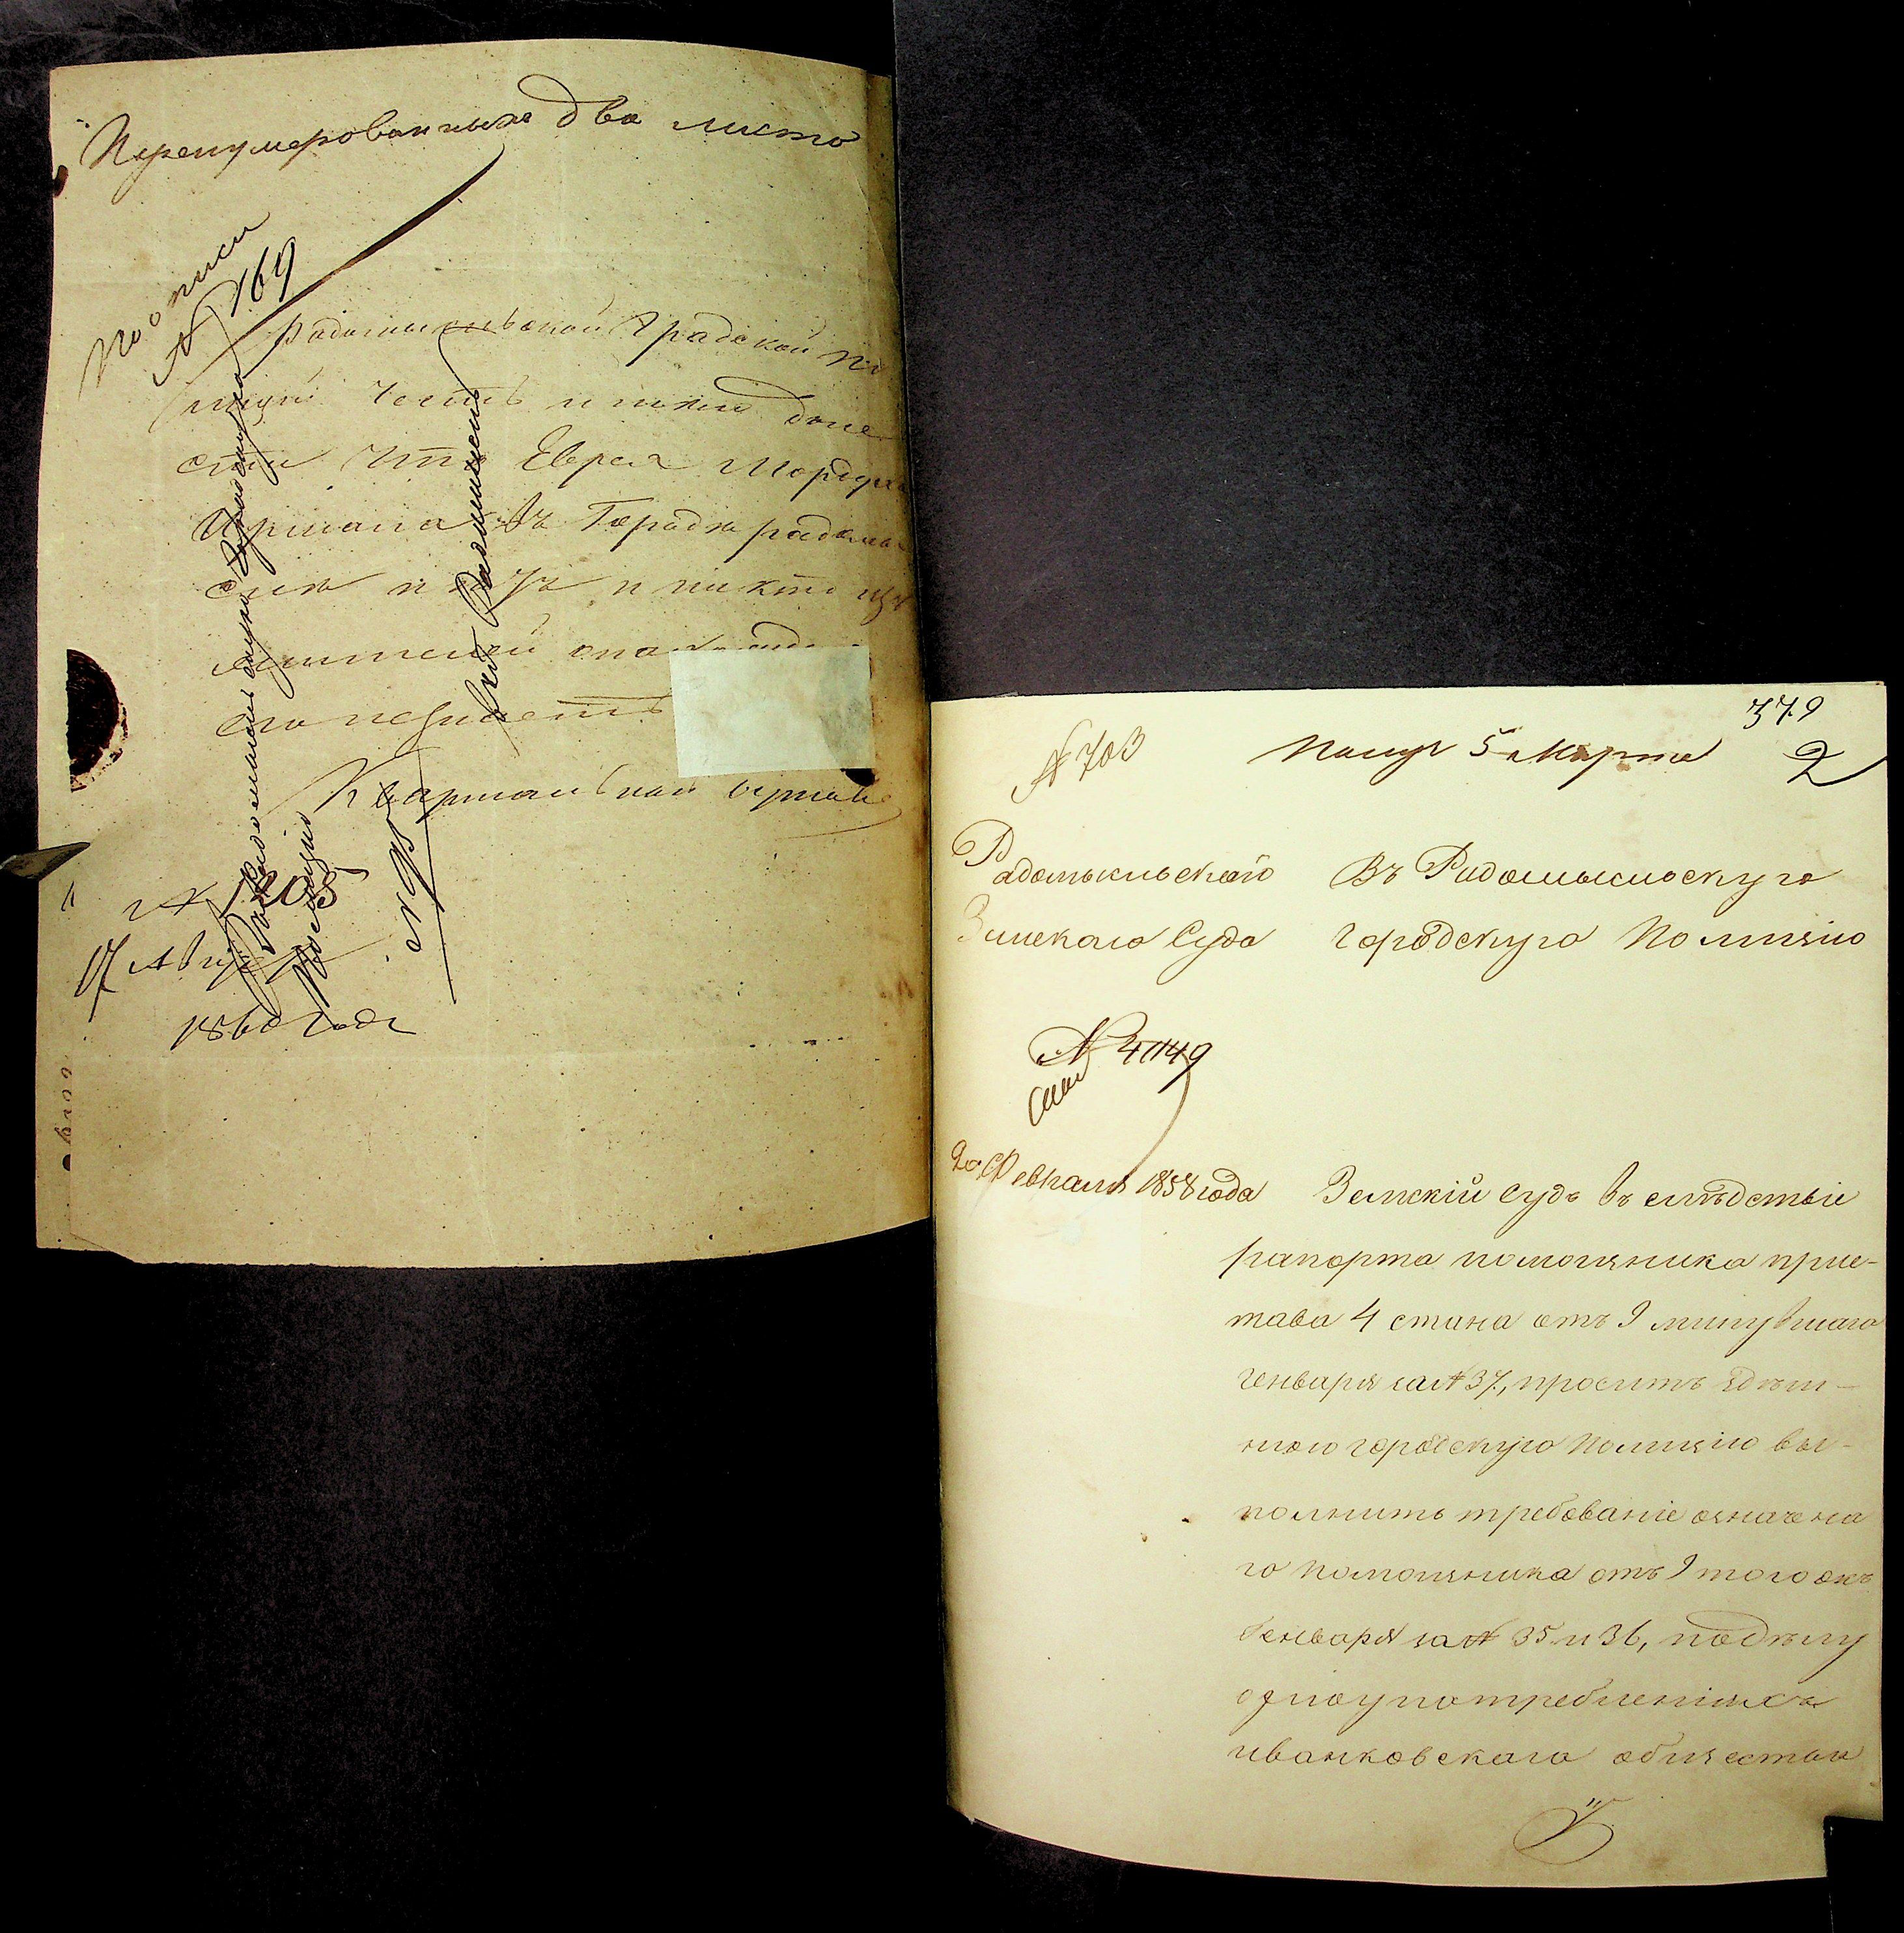 Перенумерованныхъ два листа
По описи
№ 169
Радомысльской Градской По
лиціи честь имѣю доне
сти что Еврея Мордуха
въ Городѣ Радомы
слѣ нѣтъ и никто изъ
жителей
его незнаетъ
Квартальный
№ 1203
17 Августа
1860 года
379
№ 703
Получ 5 Марта
2
Радомысльскаго
Земскаго Суда
Въ Радомысльскую
городскую Полицію
№ 4049
20 Февраля 1858 года
Земскій Судъ въ слѣдствіе
рапорта помощника прис-
тава 4 стана отъ 9 минувшаго
Генваря за № 37, проситъ здѣш-
нюю городскую Полицію вы-
полнить требованіе означена
го помощника отъ 9 того жъ
Генваря за № 35 и 36, по дѣлу
о злоупотребленіяхъ
иванковскаго общества